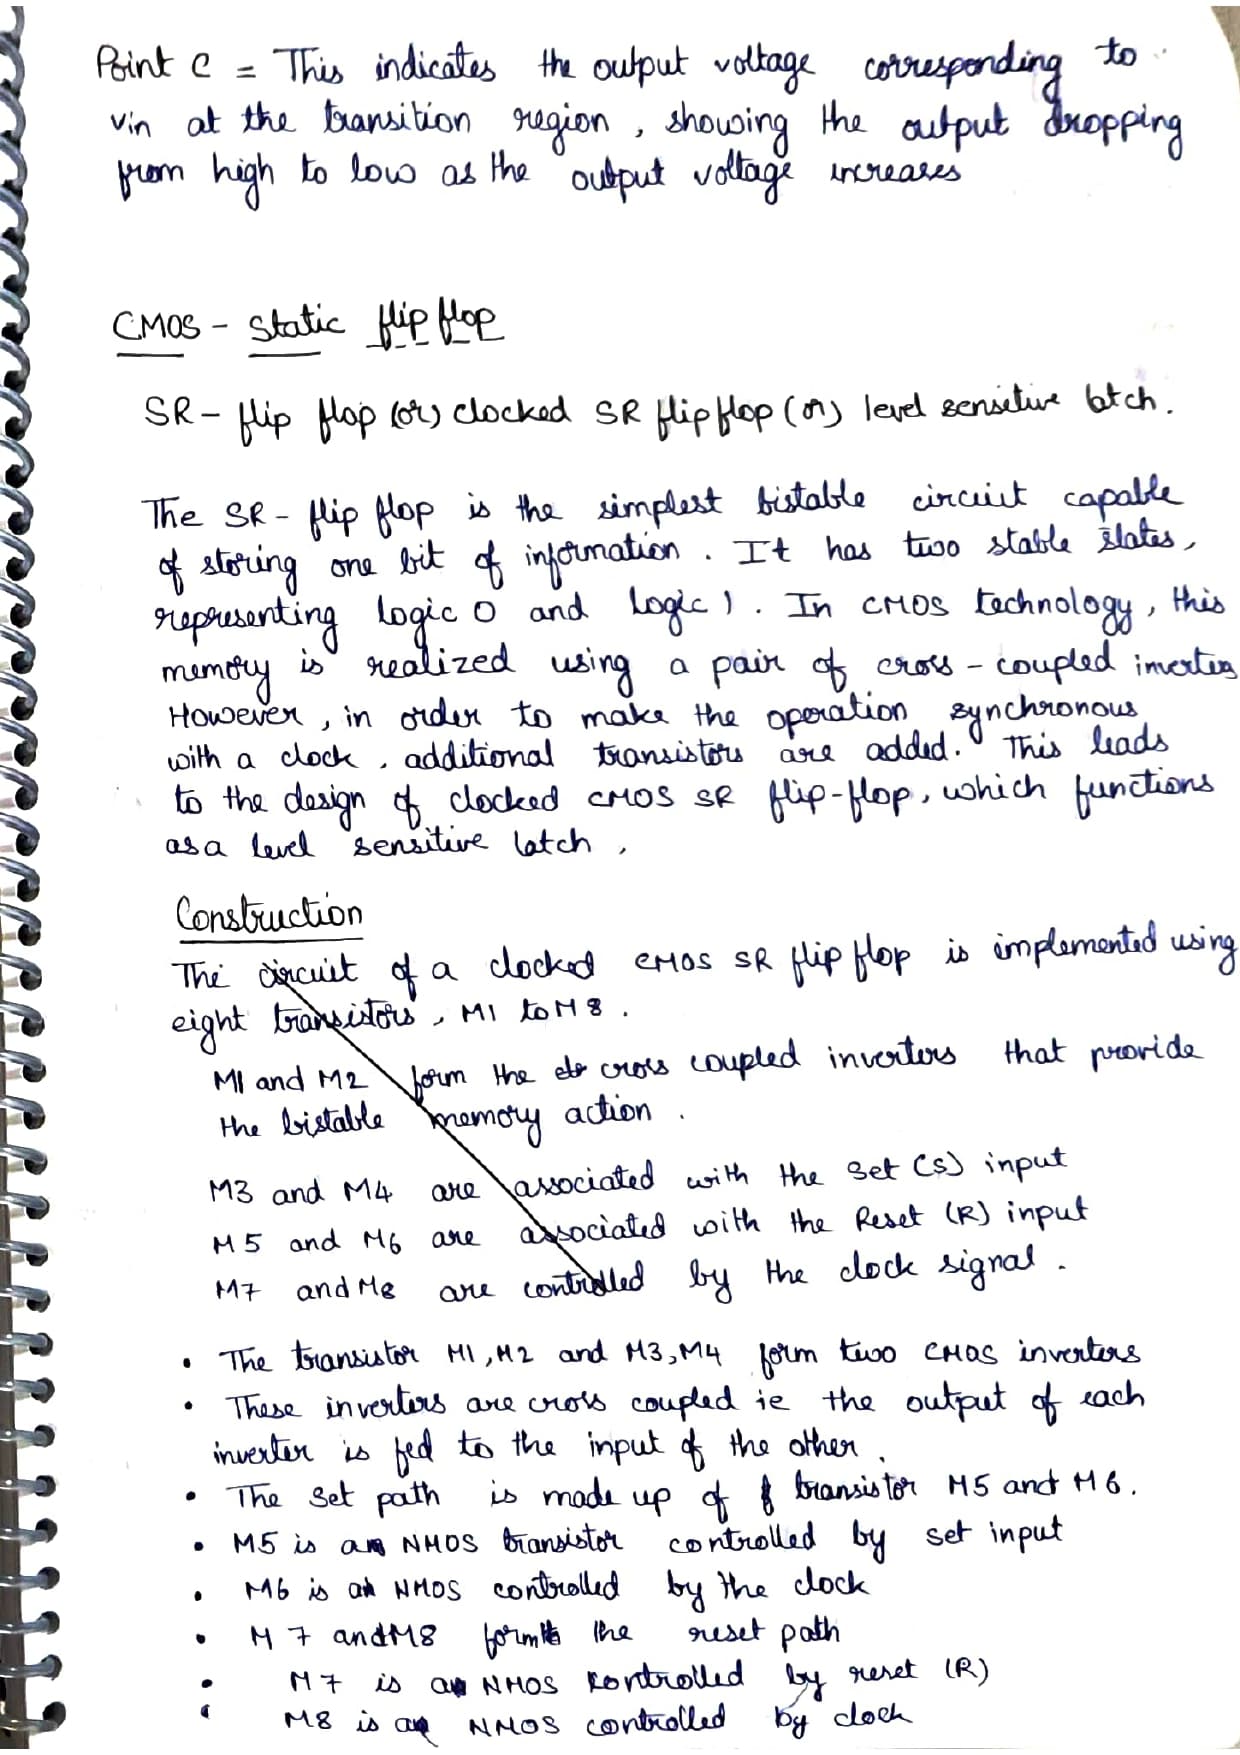 Point C = This indicates the output voltage corresponding to
Vin at the transition region, showing the output dropping
from high to low as the output voltage increases
CMOS - Static flip flop
SR - flip flop (or) clocked SR flip flop (or) level sensitive latch.
The SR - flip flop is the simplest bistable circuit capable
of storing one bit of information. It has two stable states,
representing logic 0 and logic 1. In CMOS technology, this
memory is realized using a pair of cross - coupled inverters
However, in order to make the operation synchronous
with a clock, additional transistors are added. This leads
to the design of clocked CMOS SR flip-flop, which functions
as a level sensitive latch,
Construction
The circuit of a clocked CMOS SR flip flop is implemented using
eight transistors, M1 to M8.
M1 and M2 form the cross coupled inverters that provide
the bistable memory action.
M3 and M4 are associated with the set (S) input
M5 and M6 are associated with the Reset (R) input
M7 and M8 are controlled by the clock signal.
• The transistor M1, M2 and M3, M4 form two CMOS inverters
• These inverters are cross coupled ie the output of each
inverter is fed to the input of the other.
• The set path is made up of transistor M5 and M6.
• M5 is a NMOS transistor controlled by set input
• M6 is a NMOS controlled by the clock
• M7 and M8 form the reset path
• M7 is a NMOS kontrolled by reset (R)
• M8 is a NMOS controlled by clock